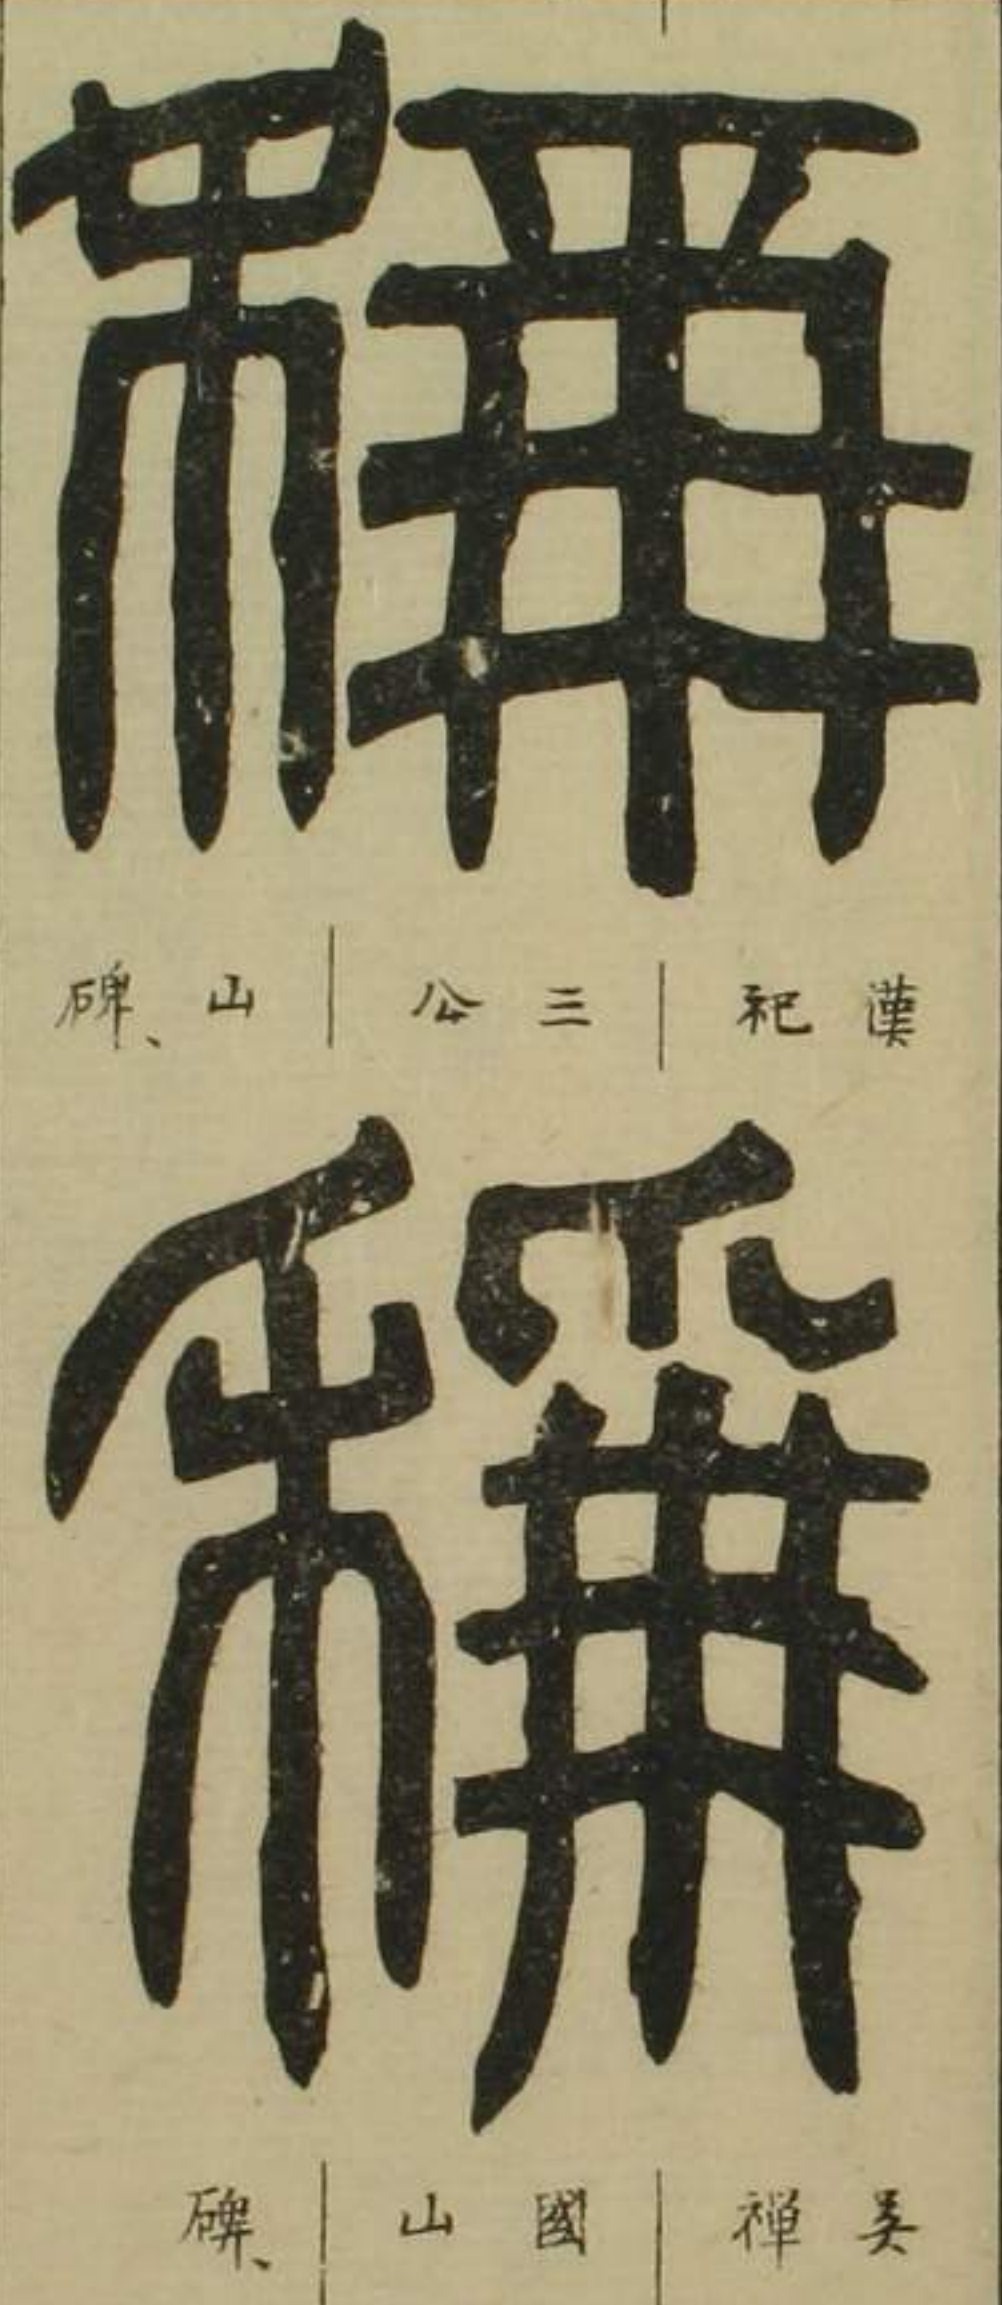 稱
漢祀三公山碑、
稱
吴禅國山碑、